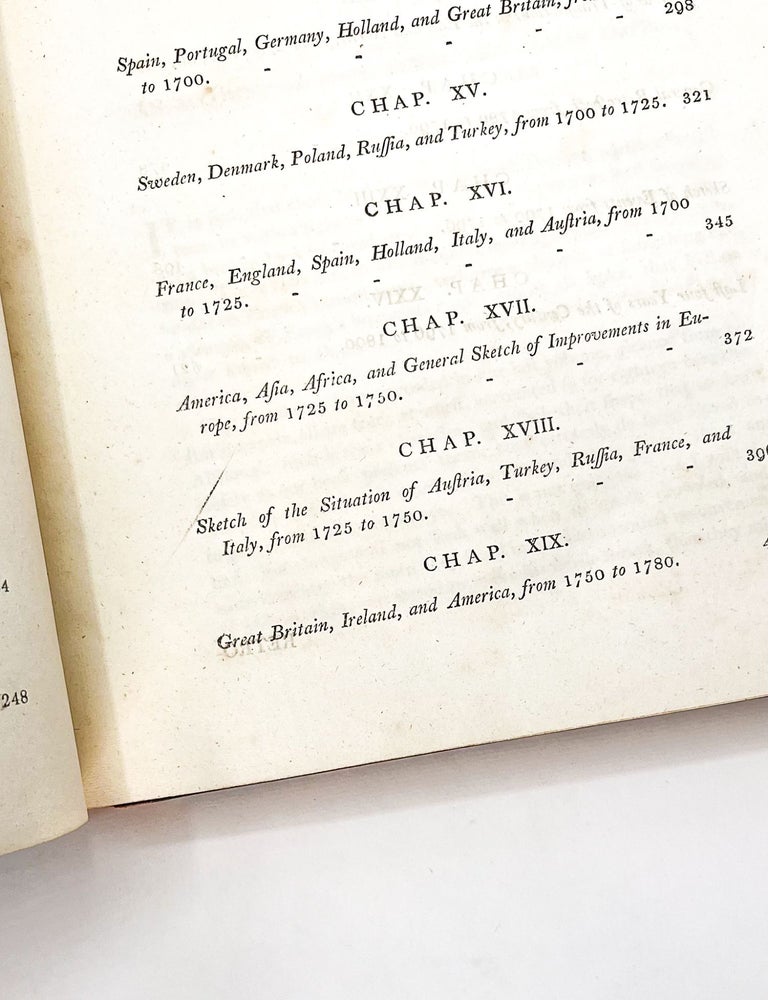 Spain, Portugal, Germany, Holland, and Great Britain,
to 1700. - - - - - 298
CHAP. XV.
Sweden, Denmark, Poland, Ruſſia, and Turkey, from 1700 to 1725. 321
CHAP. XVI.
France, England, Spain, Holland, Italy, and Auſtria, from 1700
to 1725. - - - - - 345
CHAP. XVII.
America, Aſia, Africa, and General Sketch of Improvements in Eu-
rope, from 1725 to 1750. - - - 372
CHAP. XVIII.
Sketch of the Situation of Auſtria, Turkey, Ruſſia, France, and
Italy, from 1725 to 1750. - - -
CHAP. XIX.
Great Britain, Ireland, and America, from 1750 to 1780.
4
248